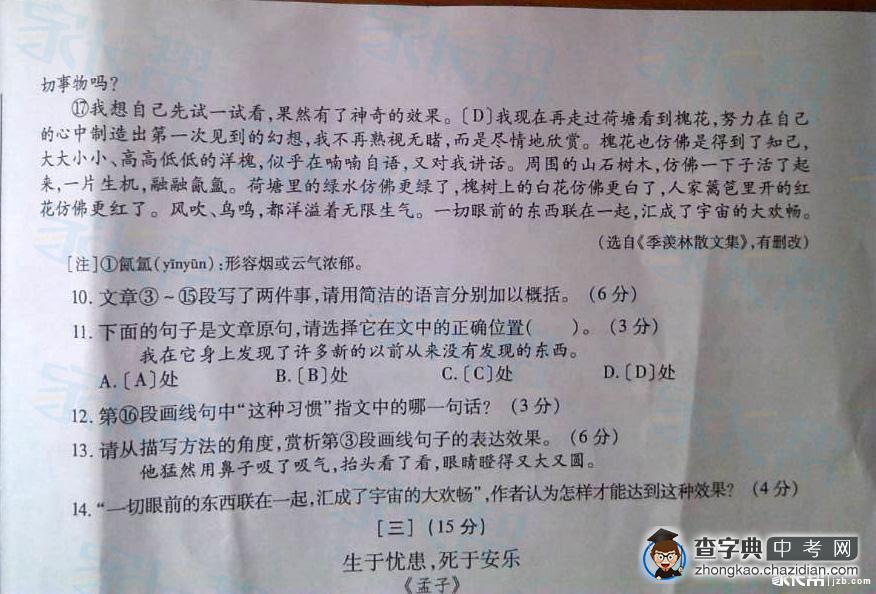 切事物吗?
⑰我想自己先试一试看,果然有了神奇的效果。〔D〕我现在再走过荷塘看到槐花,努力在自己
的心中制造出第一次见到的幻想,我不再熟视无睹,而是尽情地欣赏。槐花也仿佛是得到了知己,
大大小小、高高低低的洋槐,似乎在喃喃自语,又对我讲话。周围的山石树木,仿佛一下子活了起
来,一片生机,融融氤氲。荷塘里的绿水仿佛更绿了,槐树上的白花仿佛更白了,人家篱笆里开的红
花仿佛更红了。风吹、鸟鸣,都洋溢着无限生气。一切眼前的东西联在一起,汇成了宇宙的大欢畅。
(选自《季羡林散文集》,有删改)
[注]①氤氲(yīnyūn):形容烟或云气浓郁。
10. 文章③~⑮段写了两件事,请用简洁的语言分别加以概括。(6分)
11. 下面的句子是文章原句,请选择它在文中的正确位置(  )。(3分)
我在它身上发现了许多新的以前从来没有发现的东西。
A.〔A〕处 B.〔B〕处 C.〔C〕处 D.〔D〕处
12. 第⑯段画线句中“这种习惯”指文中的哪一句话? (3分)
13. 请从描写方法的角度,赏析第③段画线句子的表达效果。(6分)
他猛然用鼻子吸了吸气,抬头看了看,眼睛瞪得又大又圆。
14. “一切眼前的东西联在一起,汇成了宇宙的大欢畅”,作者认为怎样才能达到这种效果? (4分)
[三](15分)
生于忧患,死于安乐
《孟子》
查字典中考网
zhongkao.chazidian.com
jzb.com